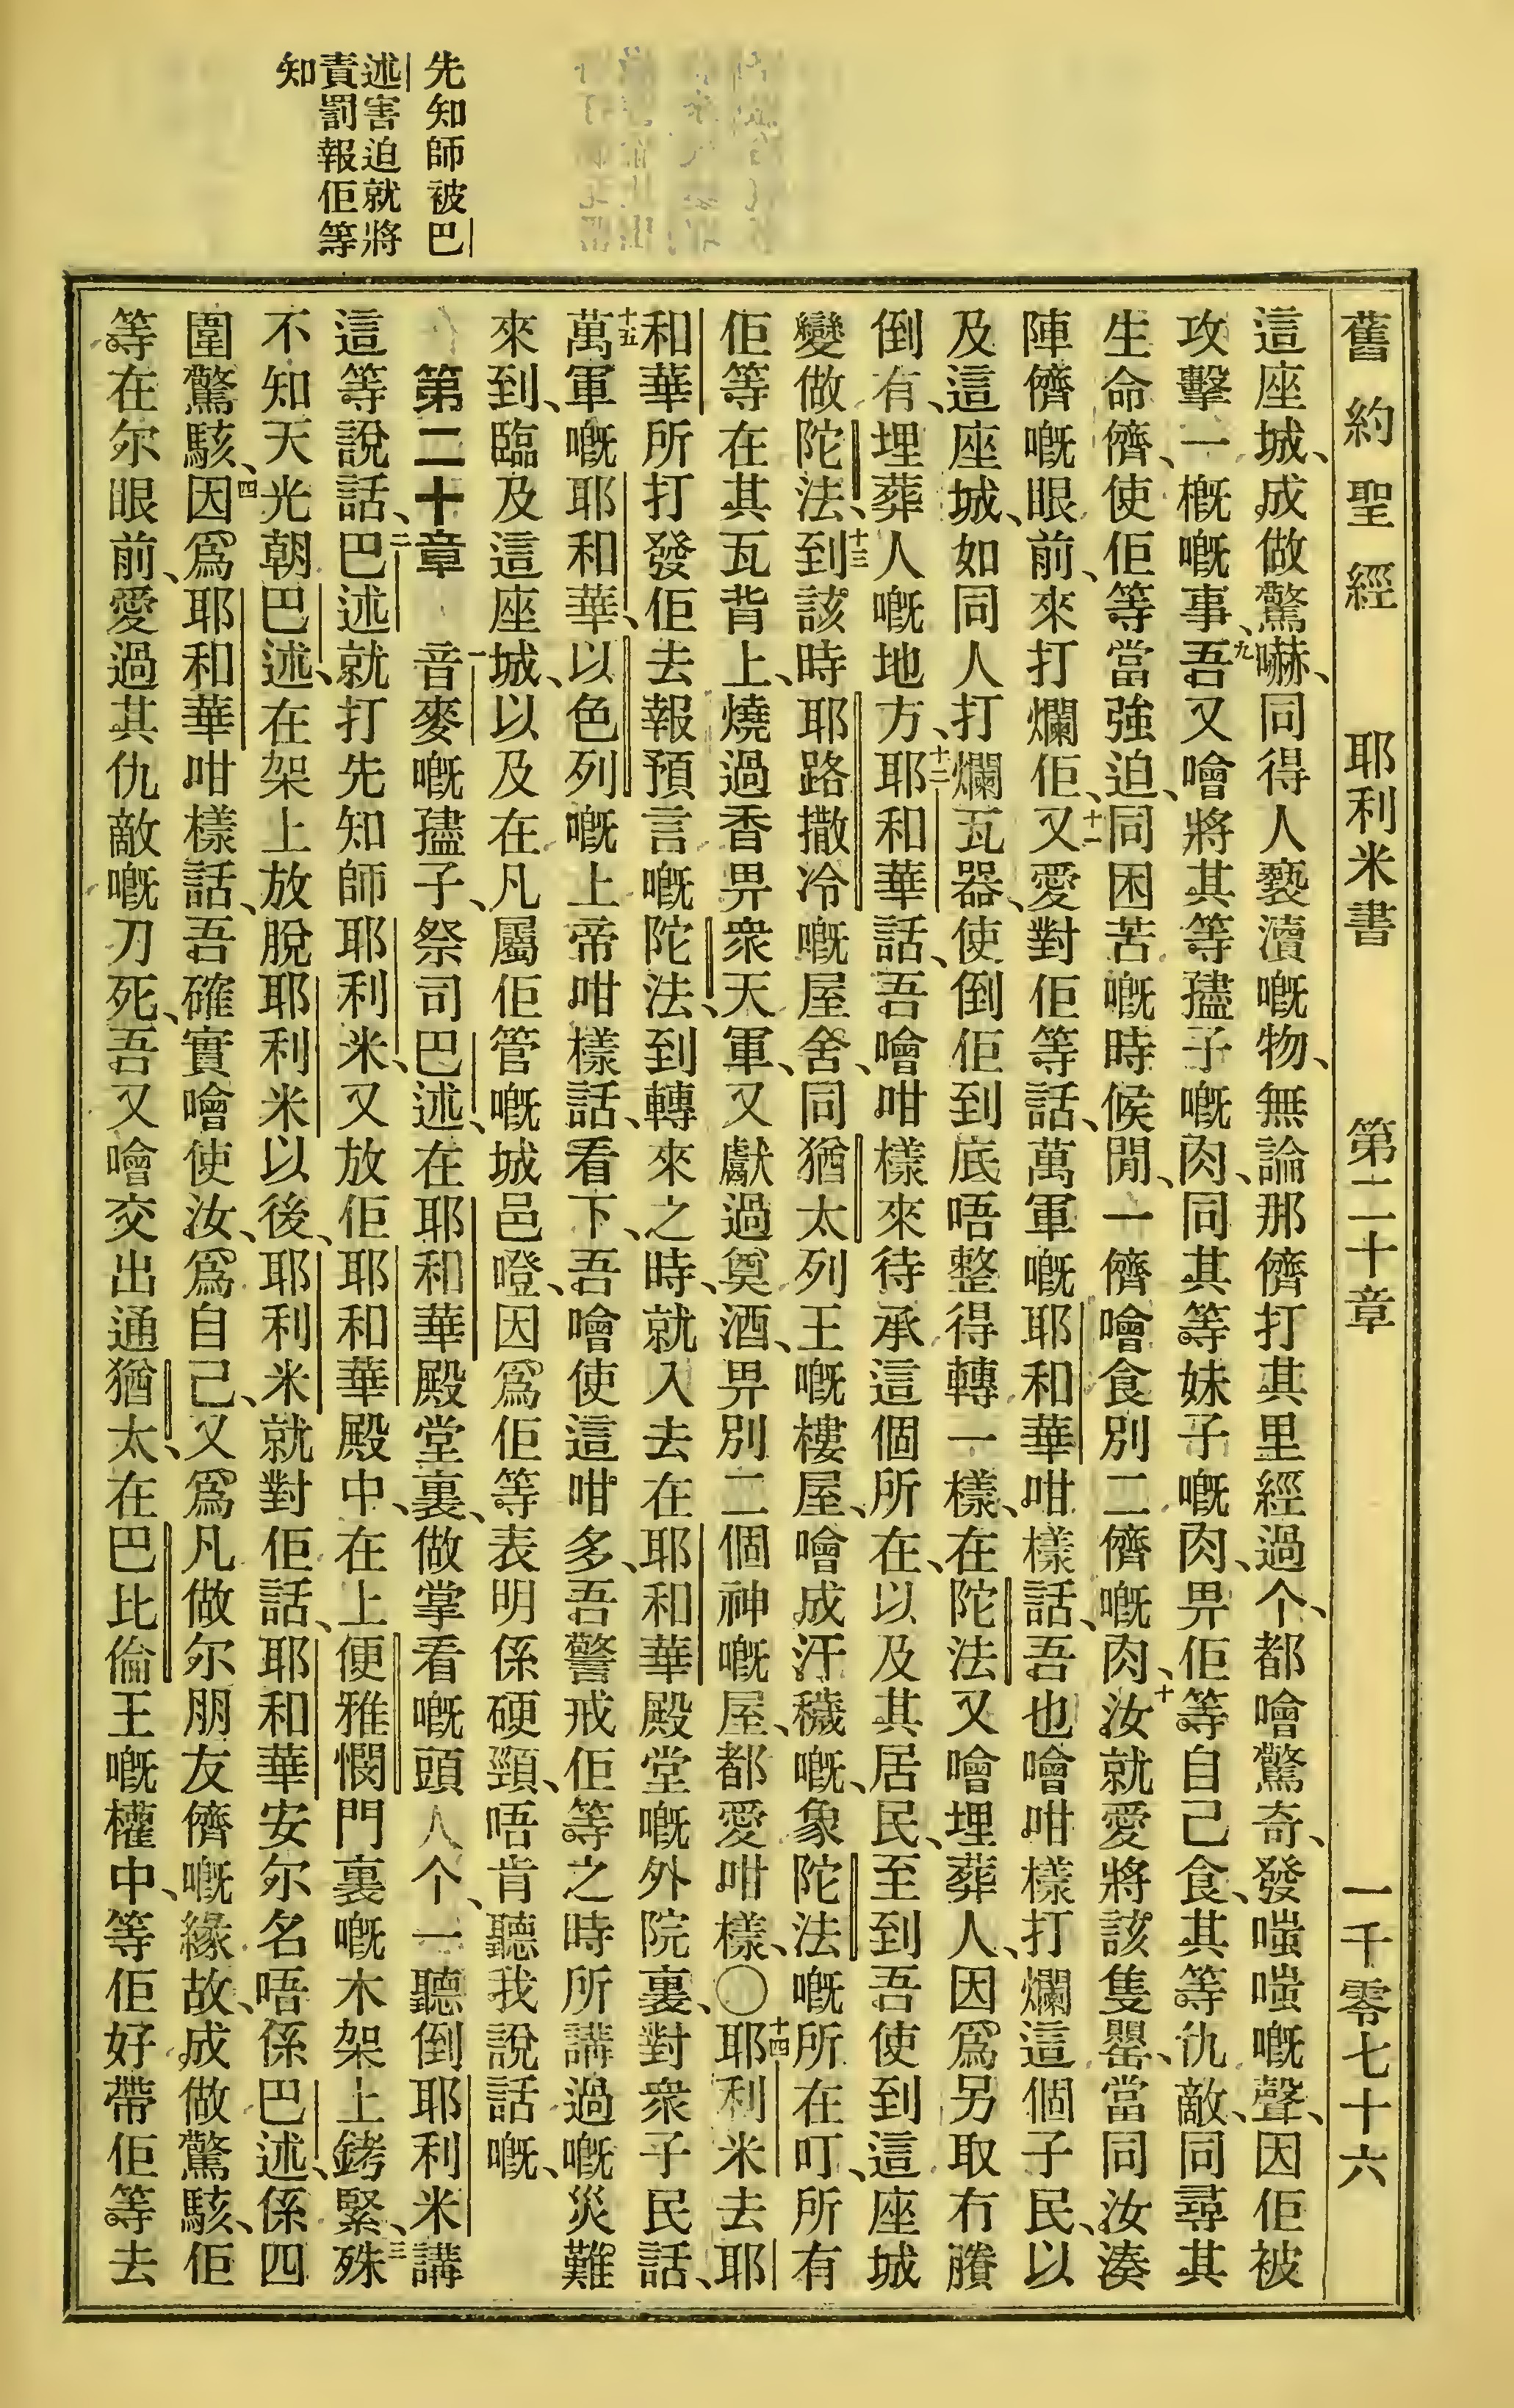 舊約聖經 耶利米書 第二十章 一千零七十六
先知師被巴
述害迫就將
責罰報佢等
知
這座城、成做驚嚇、同得人褻瀆嘅物、無論那儕打其里經過个、都噲驚奇、發嗤嗤嘅聲、因佢被
攻擊一概嘅事、九吾又噲將其等孻子嘅肉、同其等妹子嘅肉、畀佢等自己食、其等仇敵、同尋其
生命儕、使佢等當強迫、同困苦嘅時候閒、一儕噲食別二儕嘅肉、十汝就愛將該隻罌、當同汝湊
陣儕嘅眼前、來打爛佢、十一又愛對佢等話、萬軍嘅耶和華咁樣話、吾也噲咁樣打爛這個子民、以
及這座城、如同人打爛瓦器、使倒佢到底唔整得轉一樣、在陀法又噲埋葬人、因爲另取冇賸
倒有、埋葬人嘅地方、十二耶和華話、吾噲咁樣來待承這個所在、以及其居民、至到吾使到這座城
變做陀法、十三到該時耶路撒冷嘅屋舍、同猶太列王嘅樓屋、噲成汙穢嘅、象陀法嘅所在叮、所有
佢等在其瓦背上、燒過香畀衆天軍、又獻過奠酒、畀別二個神嘅屋、都愛咁樣、〇十四耶利米去耶
和華所打發佢去報預言嘅陀法、到轉來之時、就入去在耶和華殿堂嘅外院裏、對衆子民話、
十五萬軍嘅耶和華、以色列嘅上帝咁樣話、看下、吾噲使這咁多、吾警戒佢等之時所講過嘅災難
來到、臨及這座城、以及在凡屬佢管嘅城邑噔、因爲佢等表明係硬頸、唔肯聽我說話嘅、
第二十章 一音麥嘅孻子、祭司巴述、在耶和華殿堂裏、做掌看嘅頭人个、一聽倒耶利米講
這等說話、二巴述就打先知師耶利米、又放佢耶和華殿中、在上便雅憫門裏嘅木架上銬緊、三殊
不知天光朝巴述、在架上放脫耶利米以後、耶利米就對佢話、耶和華安尔名唔係巴述、係四
圍驚駭、四因爲耶和華咁樣話、吾確實噲使汝、爲自己、又爲凡做尔朋友儕嘅緣故、成做驚駭、佢
等在尔眼前、愛過其仇敵嘅刀死、吾又噲交出通猶太、在巴比倫王嘅權中、等佢好帶佢等去